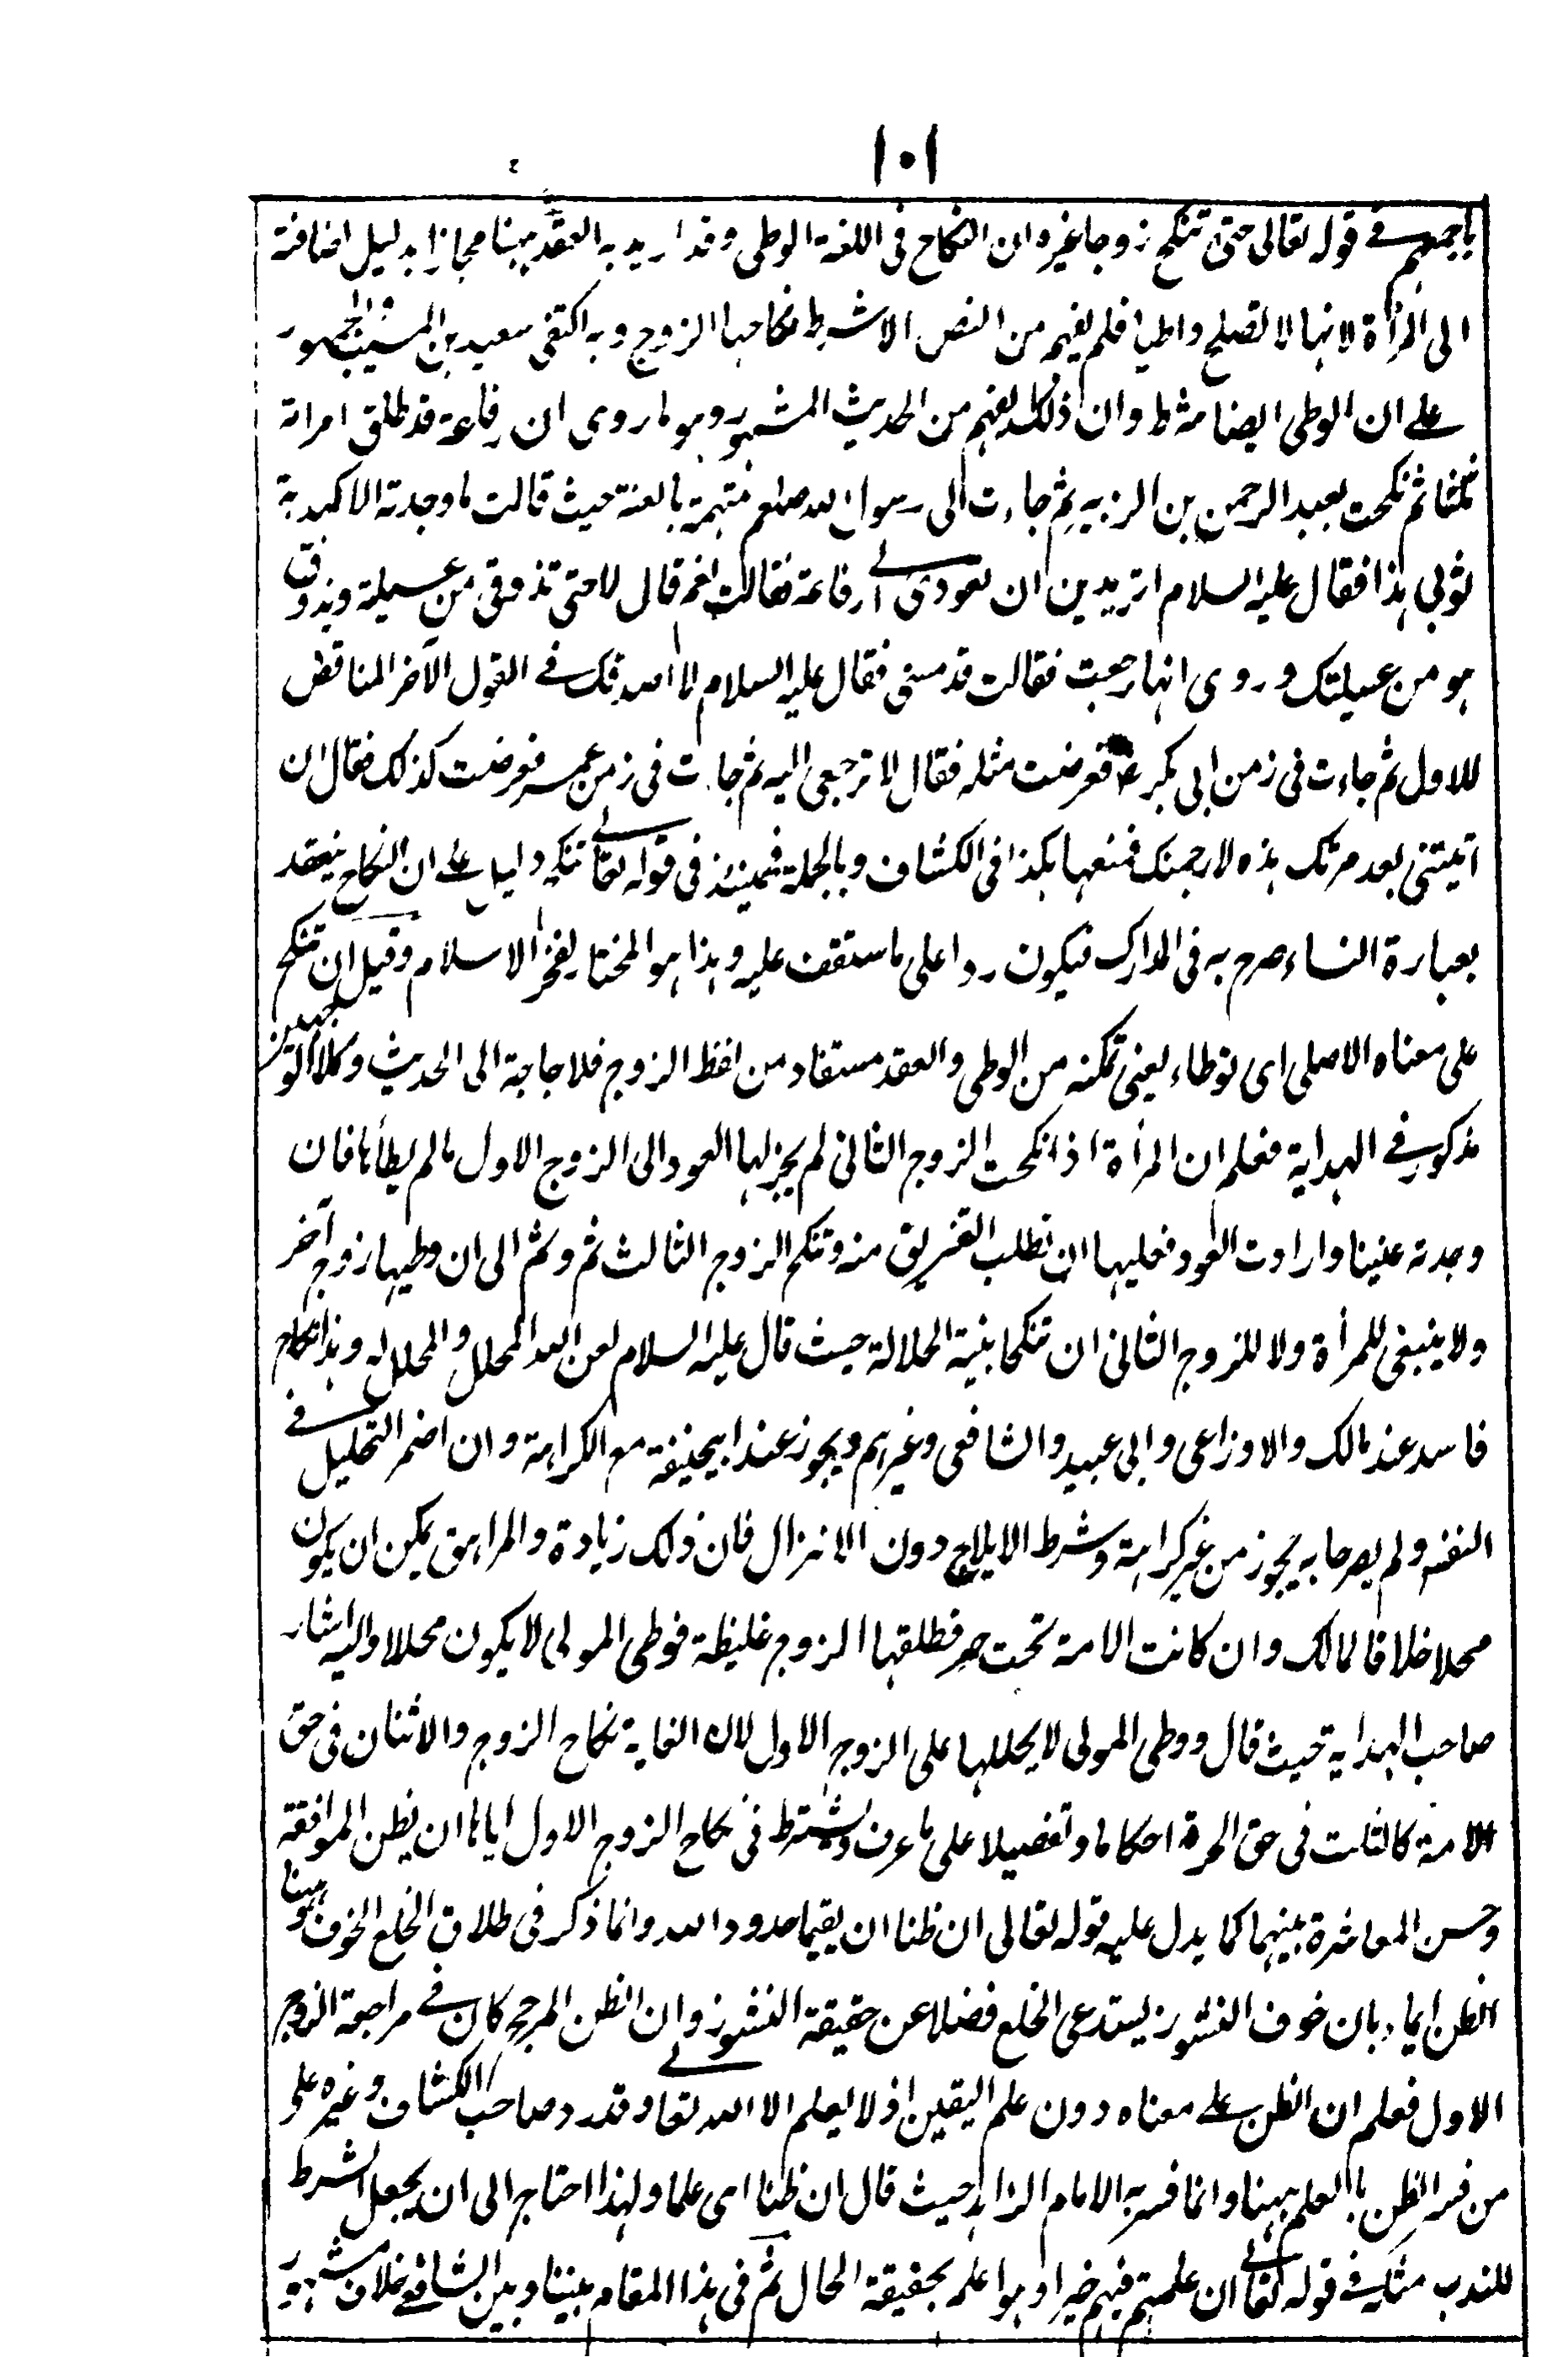 ١٠١
باجمعهم في قوله تعالى حتى تنكح زوجا غيره ان النكاح في اللغة الوطى وقد اريد به العقد ههنا مجازا بدليل اضافته
الى المرأة لانها لا تصلح واطيا فلم يفهم من النص الا شرط نكاحها الزوج وبه اكتفى سعيد بن المسيب والجمهور
على ان الوطى ايضا شرط وان ذلك يفهم من الحديث المشهور وهو ما روى ان رفاعة قد طلق امراته
ثلثا ثم نكحت بعبد الرحمن بن الزبير ثم جاءت الى رسول الله صلعم متهمة بالعنة حيث قالت ما وجدته الا كهدبة
ثوبي هذا فقال عليه السلام اتريدين ان تعودى الى رفاعة فقالت نعم قال لا حتى تذوقى من عسيلته ويذوق
هو من عسيلتك وروى انها رجعت فقالت قد مسنى فقال عليه السلام لا اصدقك في القول الآخر المناقض
للاول ثم جاءت فى زمن ابى بكر رض فعرضت مثله فقال لا ترجعى اليه ثم جاءت فى زمن عمر فعرضت كذلك فقال ان
اتيتنى بعد مرتك هذه لارجمنك فمنعها هكذا فى الكشاف وبالجملة فحينئذ فى قوله تعالى تنكح دليل على ان النكاح ينعقد
بعبارة النساء صرح به فى المدارك فيكون ردا على ما ستقف عليه وهذا هو المختار لفخر الاسلام وقيل ان تنكح
على معناه الاصلى اى توطاء يعنى تمكنه من الوطى والعقد مستفاد من لفظ الزوج فلا حاجة الى الحديث وكلا التوجيهين
مذكور في الهداية فعلم ان المرأة اذا نكحت الزوج الثانى لم يجز لها العود الى الزوج الاول ما لم يطأها فان
وجدته عنينا وارادت العود فعليها ان تطلب التفريق منه وتنكح الزوج الثالث ثم وثم الى ان وطيها زوج آخر
ولا ينبغى للمرأة ولا للزوج الثانى ان تنكحا بنية الحلالة حيث قال عليه السلام لعن الله المحلل والمحلل له وهذا نكاح
فاسد عند مالك والاوزاعى وابى عبيد والشافعى وغيرهم ويجوز عند ابيحنيفة مع الكراهة وان اضمر التحليل في
النفس ولم يصرحا به يجوز من غير كراهة وشرط الايلاج دون الانزال فان ذلك زيادة والمراهق يمكن ان يكون
محللا خلافا لمالك وان كانت الامة تحت حر فطلقها الزوج غليظة فوطى المولى لا يكون محللا واليه اشار
صاحب الهداية حيث قال ووطى المولى لا يحللها على الزوج الاول لان الغاية نكاح الزوج والاثنان فى حق
الامة كالثلث فى حق الحرة احكاما وتفصيلا على ما عرف ويشترط فى نكاح الزوج الاول اياها ان يظن الموافقة
وحسن المعاشرة بينهما كما يدل عليه قوله تعالى ان ظنا ان يقيما حدود الله وانما ذكر فى طلاق الخلع الخوف وههنا
الظن ايماء بان خوف النشوز يستدعى الخلع فضلا عن حقيقة النشوز وان الظن المرجح كان في مراجعة الزوج
الاول فعلم ان الظن على معناه دون علم اليقين اذ لا يعلم الا الله تعالى وقد رد صاحب الكشاف وغيره على
من فسر الظن بالعلم ههنا وانما فسر به الامام الزاهد حيث قال ان ظنا اى علما ولهذا احتاج الى ان يجعل الشرط
للندب مثله في قوله تعالى ان علمتم فيهم خيرا وهو اعلم بحقيقة الحال ثم فى هذا المقام بيننا وبين الشافعي خلاف مشهور